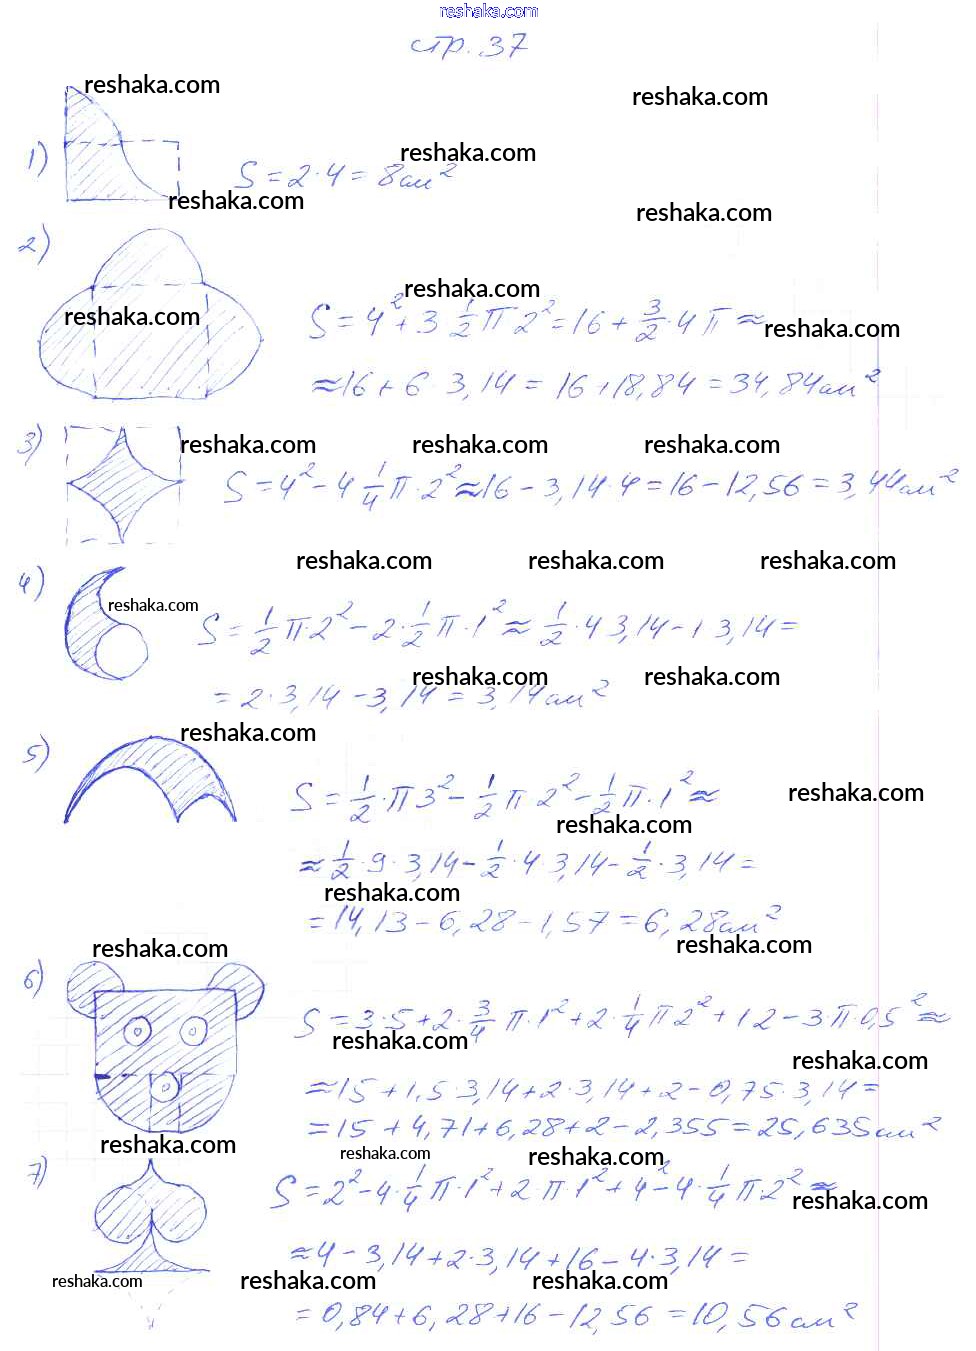 reshaka.com
стр. 37
reshaka.com
reshaka.com
reshaka.com
1) S = 2 · 4 = 8 см²
reshaka.com
reshaka.com
2)
reshaka.com
reshaka.com
S = 4² + 3 1/2 π 2² = 16 + 3/2 · 4 π ≈
reshaka.com
≈ 16 + 6 · 3,14 = 16 + 18,84 = 34,84 см²
3)
reshaka.com reshaka.com reshaka.com
S = 4² - 4 1/4 π · 2² ≈ 16 - 3,14 · 4 = 16 - 12,56 = 3,44 см²
reshaka.com reshaka.com reshaka.com
4)
reshaka.com
S = 1/2 π · 2² - 2 · 1/2 π · 1² ≈ 1/2 · 4 3,14 - 1 3,14 =
reshaka.com reshaka.com
= 2 · 3,14 - 3,14 = 3,14 см²
reshaka.com
5)
S = 1/2 · π 3² - 1/2 π 2² - 1/2 π · 1² ≈
reshaka.com
reshaka.com
≈ 1/2 · 9 · 3,14 - 1/2 · 4 · 3,14 - 1/2 · 3,14 =
reshaka.com
= 14,13 - 6,28 - 1,57 = 6,28 см²
reshaka.com reshaka.com
6)
S = 3 · 5 + 2 · 3/4 π · 1² + 2 · 1/4 π 2² + 1 2 - 3 · π · 0,5² ≈
reshaka.com
reshaka.com
≈ 15 + 1,5 · 3,14 + 2 · 3,14 + 2 - 0,75 · 3,14 =
= 15 + 4,71 + 6,28 + 2 - 2,355 = 25,635 см²
reshaka.com reshaka.com reshaka.com
7)
S = 2² - 4 · 1/4 π · 1² + 2 · π · 1² + 4² - 4 · 1/4 π · 2² ≈
reshaka.com
≈ 4 - 3,14 + 2 · 3,14 + 16 - 4 · 3,14 =
reshaka.com reshaka.com reshaka.com
= 0,84 + 6,28 + 16 - 12,56 = 10,56 см²